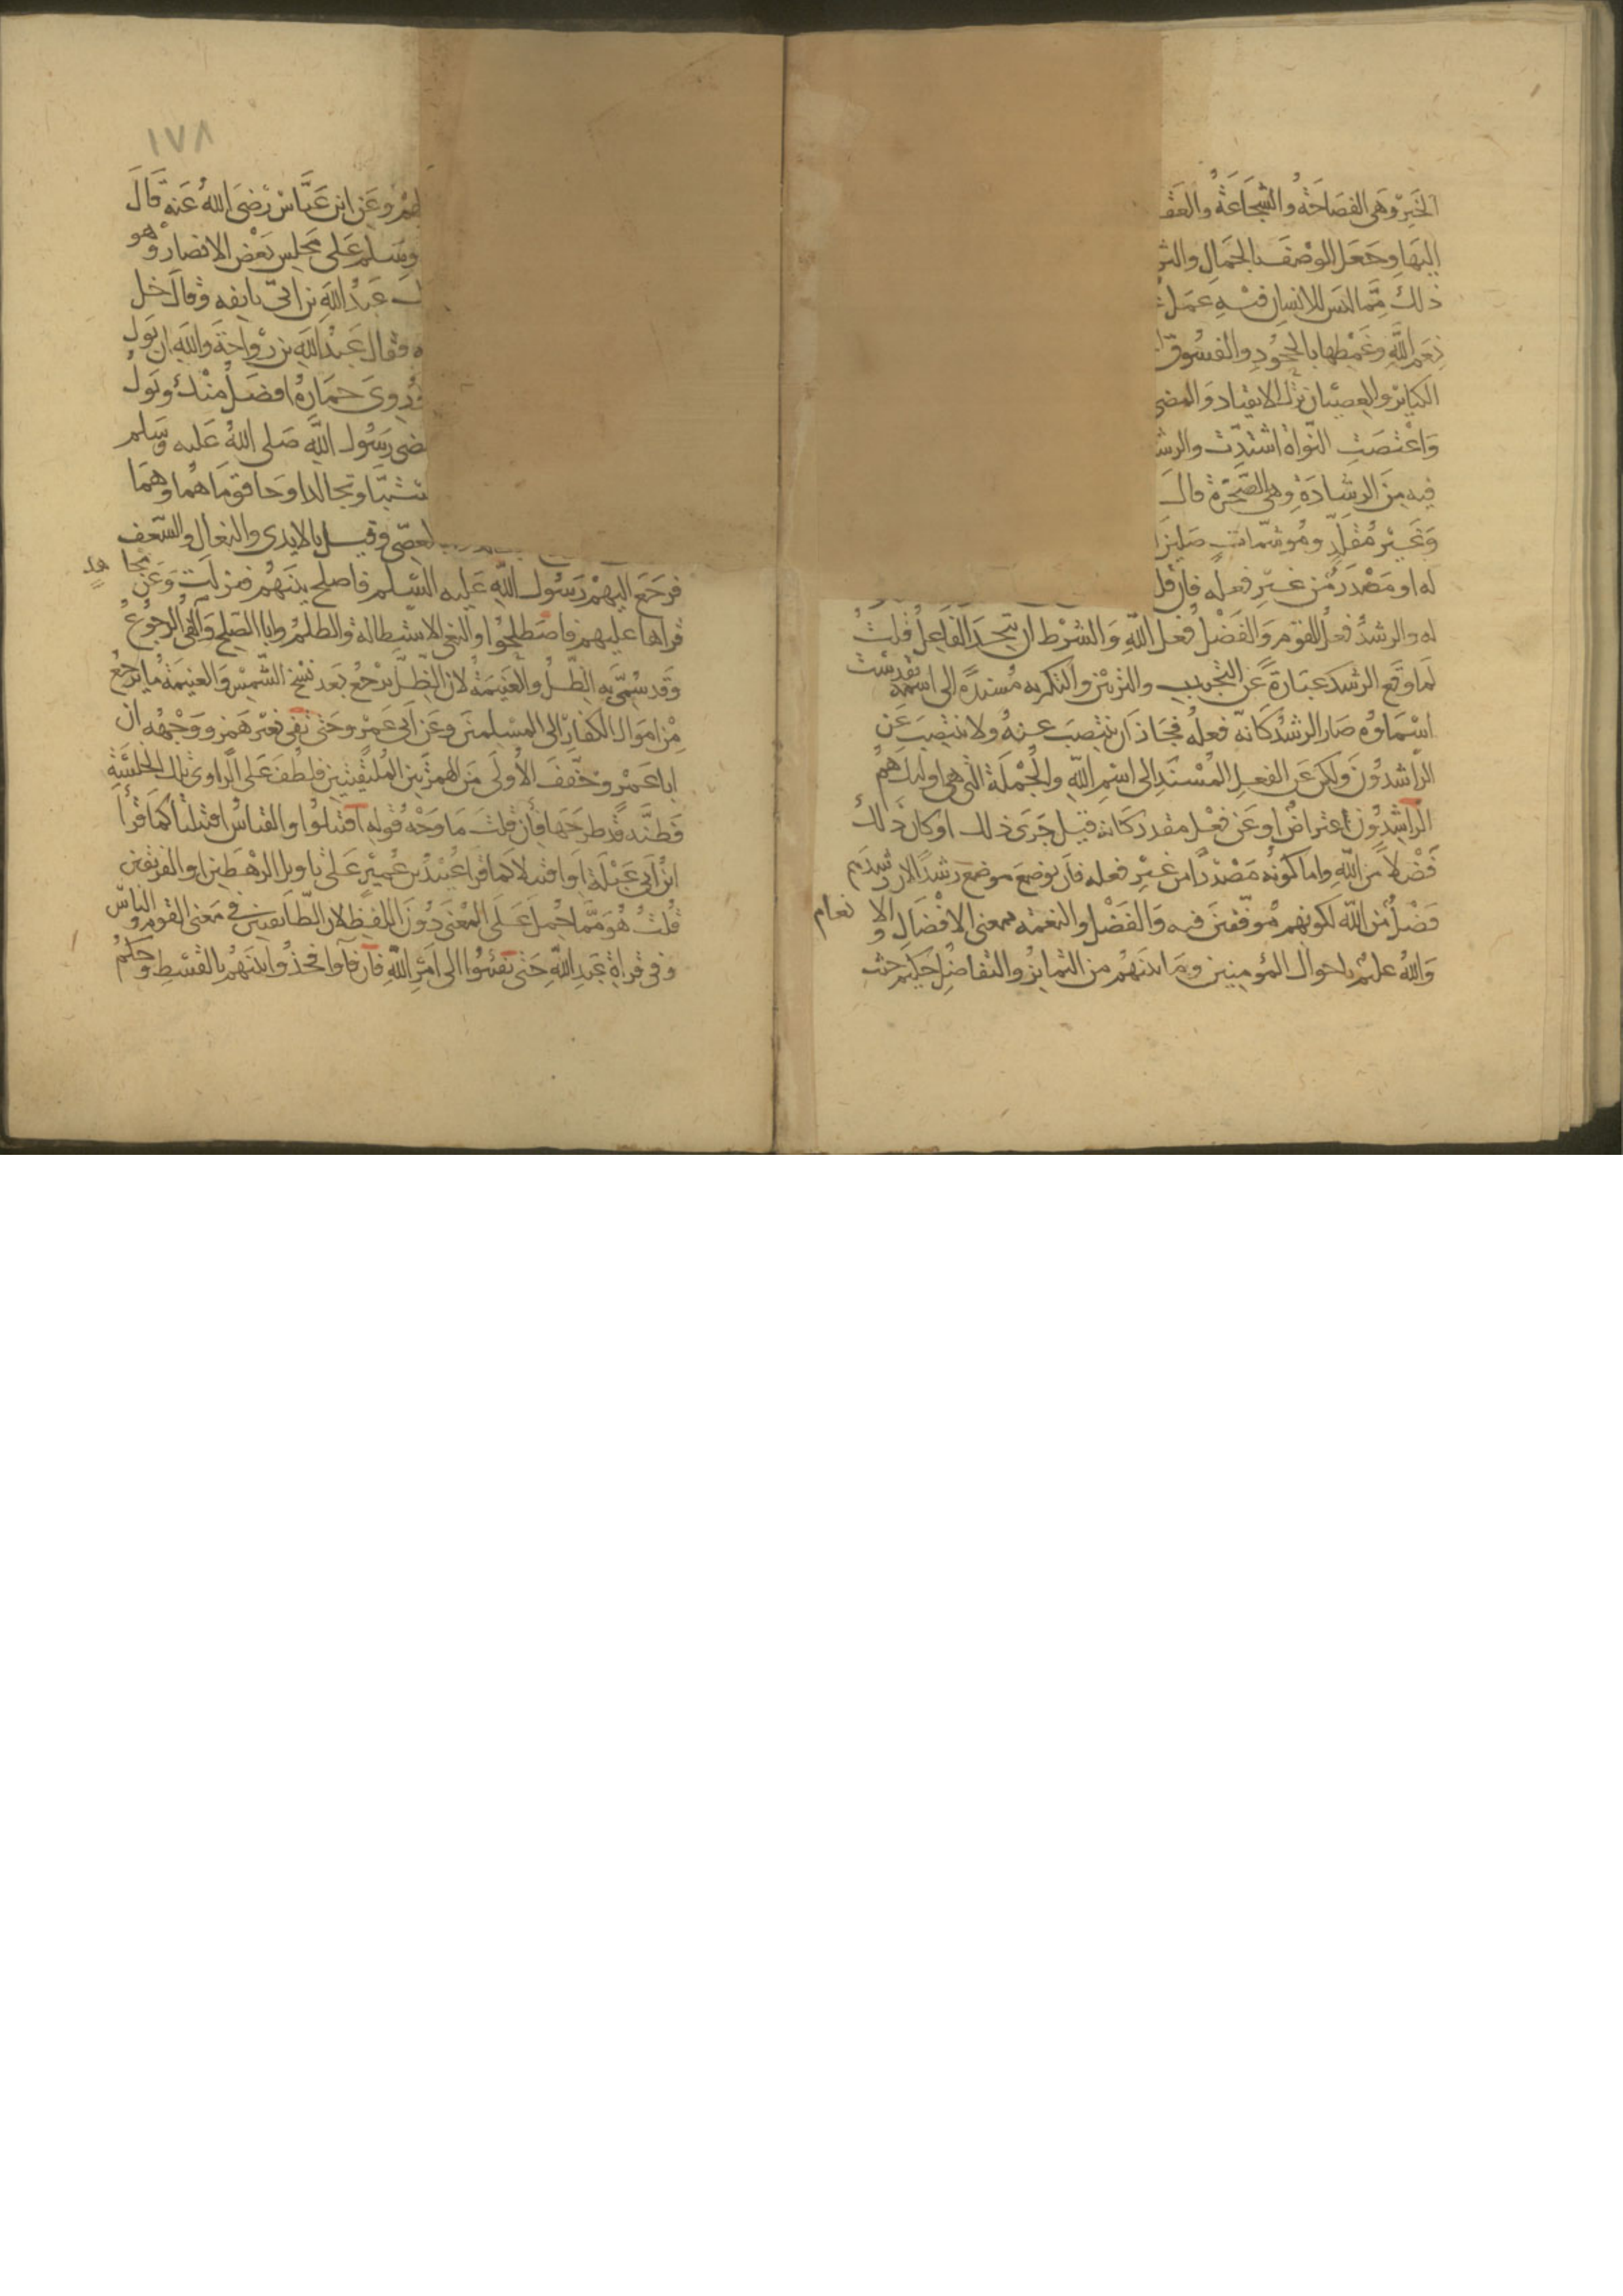 الخير وهى الفصاحة والشجاعة والعقـ
البها وجعل الوصف بالجمال والثر
ذلك مما ليس للانسان فيه عمل
نعم الله وغمطها بالجحود والفسوق
الكبائر والعصيان ترك الانقياد والمضى
واعتصت النواة اشتدت والرشـ
فيه من الرشادة وهى الصخرة قال
وغير مقلد وموشمات صلين
له او مصدر من غير فعله فان قلـ
له والرشد فعل القوم والفضل فعل الله والشرط ان يتحد الفاعل قلت
لما وقع الرشد عبارة عن التحبيب والتزيين والتكريه مسندة الى اسمه تقدست
اسماوه صار الرشد كانه فعله فجاز ان ينتصب عنه ولا ينتصب عن
الراشدون ولكن عن الفعل المسند الى اسم الله والجملة التى هى اوليك هم
الراشدون اعتراض او عن فعل مقدر كانه قيل جرى ذلك او كان ذلك
فضلا من الله واما كونه مصدرا من غير فعله فان يوضع موضع رشدا لان رشدهم
فضل من الله لكونهم موفقين فيه والفضل والنعمه بمعنى الافضال والا نعام
والله عليم باحوال المومنين وما بينهم من التمايز والتفاضل حكيم حين
١٧٨
وعن ابن عباس رضى الله عنه قال
وسلم على مجلس بعض الانصار وهو
عبد الله بن ابى بانفه وقال خل
فقال عبد الله بن رواحة والله ان بول
وروى حماره افضل منك وبول
ـضى رسول الله صلى الله عليه وسلم
ـستبا وتجالدا وجا قوماهما وهما
العصى وقيل بالايدى والنعال والسعف
فرجع اليهم رسول الله عليه السلم فاصلح بينهم فنزلت وعن مجا هد
قراها عليهم فاصطلحوا والبغى الاستطالة والظلم وابا الصلح والفى الرجوع
وقد سمى به الظل والغنيمة لان الظل يرجع بعد نسخ الشمس والغنيمة ما يرجع
من اموال الكفار الى المسلمين وعن ابى عمرو حتى تفى بغير همز ووجهه ان
ابا عمرو خفف الاولى من الهمزتين الملتقيتين فلطفت على الراوى تلك الخلسة
فظنه قد طرحها فان قلت ما وجه قوله اقتتلوا والقياس اقتتلتا كما قرا
ابن ابى عبلة او اقتتلا كما قرا عبيد بن عمير على تاويل الرهطين او الفريقين
قلت هو مما حمل على المعنى دون اللفظ لان الطائفتين فى معنى القوم والناس
وفى قراة عبد الله حتى يفيئوا الى امر الله فان فاوا فخذوا بينهم بالقسط وحكم